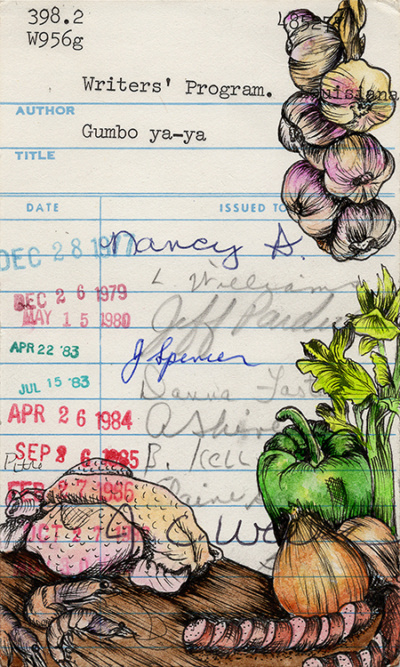 398.2
W956g
Writers' Program. Louisiana
AUTHOR
Gumbo ya-ya
TITLE
DATE ISSUED TO
DEC 28 1977 Nancy S.
DEC 26 1979 L Williams
MAY 15 1980 Jeff
APR 22 '83 J Spencer
JUL 15 '83 Danna
APR 26 1984 A
SEP 26 1985 B. Kell
FEB 27 1986
OCT 27